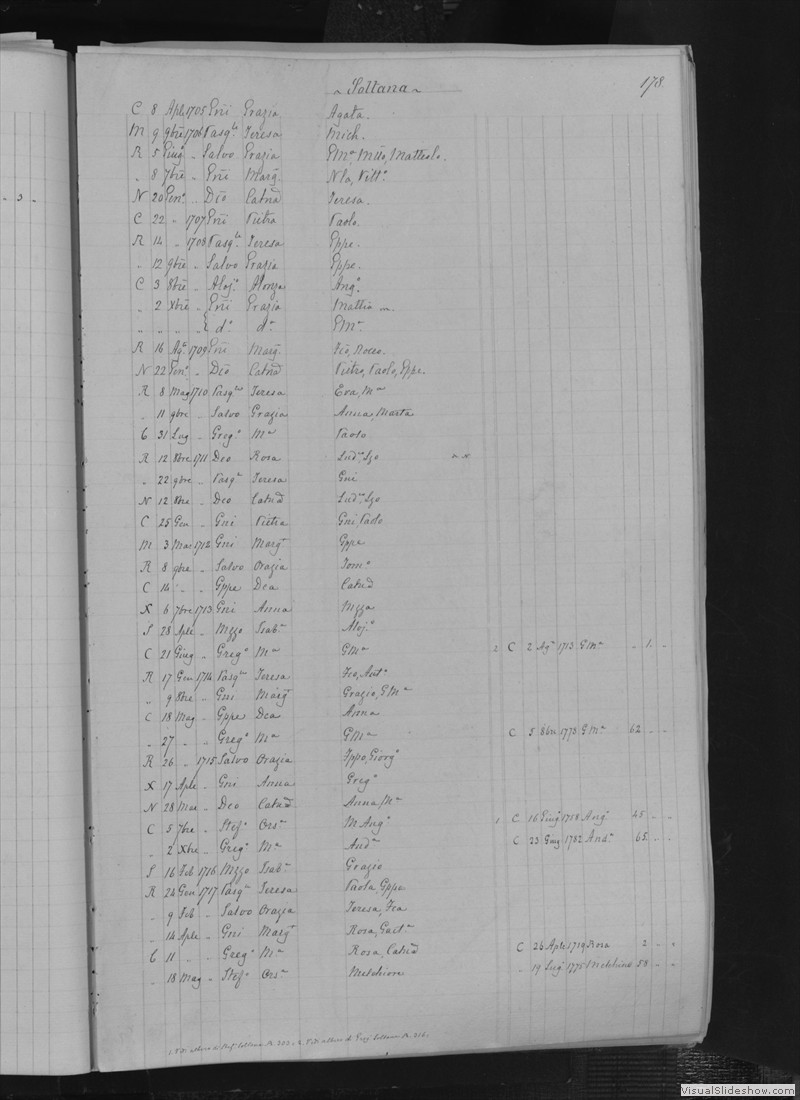 ~ Soltana ~ 178.
C 8 Aple 1705 Gñi Grazia Agata.
M 9 9bre 1706 Pasqle Teresa Mich.
R 5 Giugo .. Salvo Grazia GMa, Mzio, Matteolo.
.. 8 7bre .. Gñi Marg. Nlo, Vitto.
- 3 - N 20 Geno .. Deo Catnd Teresa.
C 22 .. 1707 Gñi Pietra Paolo.
R 14 .. 1708 Pasqle Teresa Gppe.
.. 12 9bre .. Salvo Grazia Gppe.
C 3 8bre .. Alojo Alonza Ango.
.. 2 Xbre .. Gñi Grazia Mattia
.. .. .. .. E do da GMa.
R 16 Ago 1709 Gñi Marg. Fco, Rocco.
N 22 Geno .. Deo Catnd Pietro, Paolo, Gppe.
R 8 Mag 1710 Pasqle Teresa Eva, Ma
.. 11 9bre .. Salvo Grazia Anna, Marta
C 31 Lug .. Grego Ma Paolo
R 12 8bre 1711 Deo Rosa Ludco Lzo
.. 22 9bre .. Pasqle Teresa Gni
N 12 8bre .. Deo Catnd Ludco Lzo
C 25 Gen .. Gni Pietra Gni Paolo
M 3 Mar 1712 Gni Margta Gppe
R 8 9bre .. Salvo Orazia Tomo
C 16 .. .. Gppe Dca Catnd
X 6 7bre 1713 Gni Anna Mzza
S 28 Aple .. Mzzo Isaba Alojo
C 21 Giug .. Grego Ma GMa 2 C 2 Ago 1713 GMa .. 1. ..
R 17 Gen 1714 Pasqle Teresa Fco, Anto
.. 9 8bre .. Gni Margta Grazio, GMa
C 18 Mag .. Gppe Dca Anna
.. 27 .. .. Grego Ma GMa C 5 8bre 1778 GMa 62 .. ..
R 26 .. 1715 Salvo Orazia Ippo, Giorgo
X 17 Aple .. Gni Anna Grego
N 28 Mar .. Deo Catnd Anna, Ma
C 5 7bre .. Stefo Orsa M Ango 1 C 16 Giugo 1758 Ango 45 .. ..
.. 2 Xbre .. Grego Ma Anda C 23 Giug 1782 Anda 65 .. ..
S 16 Feb 1716 Mzzo Isaba Grazio
R 24 Gen 1717 Pasqle Teresa Paola Gppe
.. 9 Feb .. Salvo Orazia Teresa, Fca
.. 14 Aple .. Gni Margta Rosa, Gaeta
C 11 .. .. Grego Ma Rosa, Catnd C 26 Aple 1719 Rosa 2 .. ..
.. 18 Mag .. Stefo Orsa Melchiore .. 19 Lugo 1775 Melchiore 58 .. ..
VisualSlideshow.com